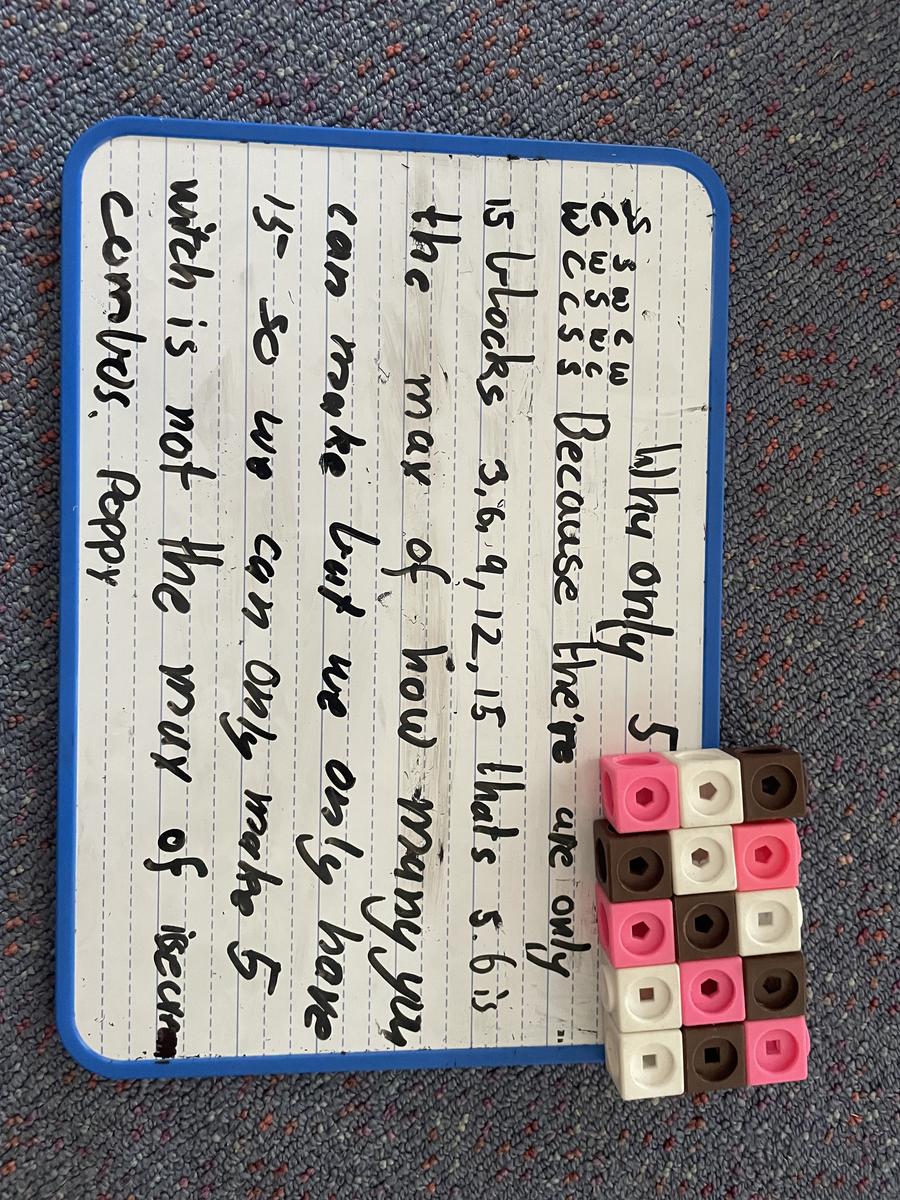 Why only 5
S S W C W
C W S W C
W C C S S Because the're are only
15 blocks 3,6,9,12,15 thats 5. 6 is
the max of how many yu
can make but we only have
15 so we can only make 5
witch is not the max of
combos. Poppy